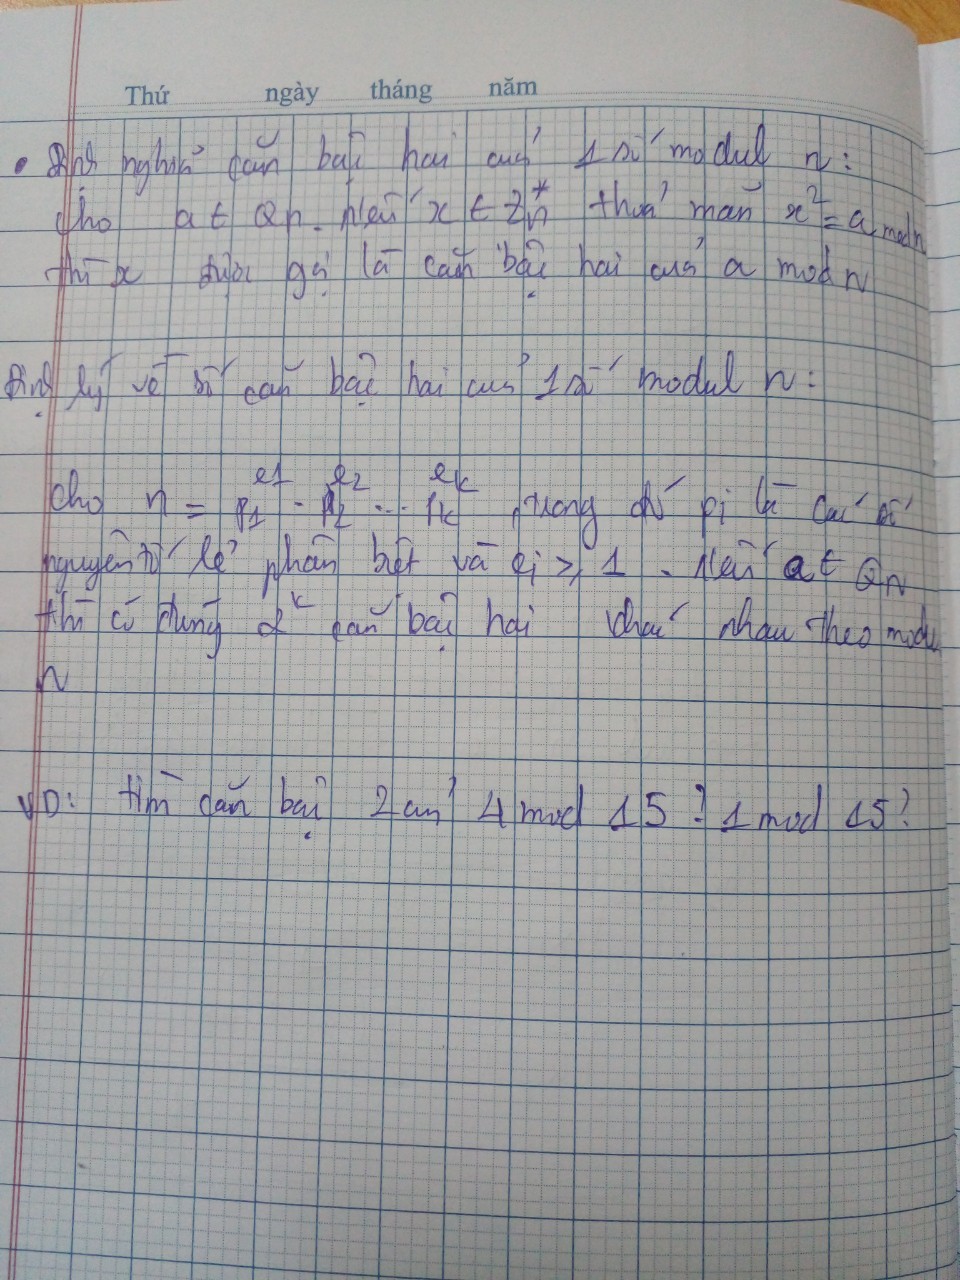 Thứ ngày tháng năm
• Định nghĩa căn bậc hai của 1 số modul n:
Cho a ∈ Qn. Nếu x ∈ Zn* thoả mãn x² = a mod n
thì x được gọi là căn bậc hai của a mod n
Định lý về số căn bậc hai của 1 số modul n:
Cho n = p1^e1 . p2^e2 ... pk^ek trong đó pi là các số
nguyên tố lẻ phân biệt và ei >, 1. Nếu a ∈ Qn
thì có đúng 2^k căn bậc hai khác nhau theo modul
n
VD: tìm căn bậc 2 của 4 mod 15? 1 mod 15?